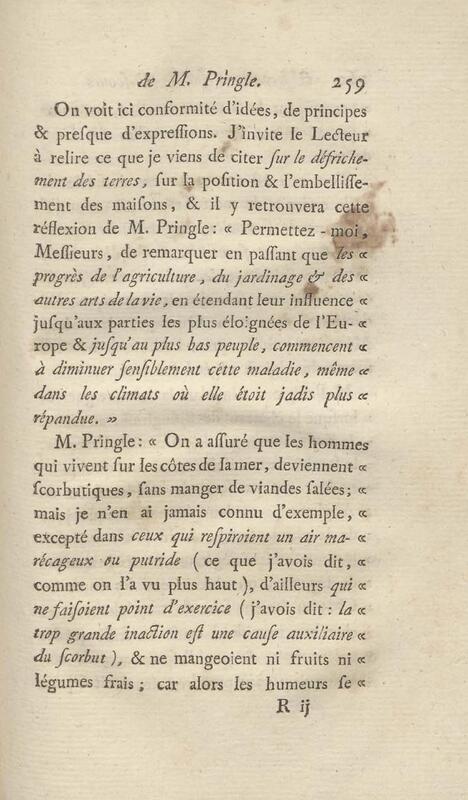 de M. Pringle. 259
On voit ici conformité d'idées, de principes
& preſque d'expreſſions. J'invite le Lecteur
à relire ce que je viens de citer ſur le défriche-
ment des terres, ſur la poſition & l'embelliſſe-
ment des maiſons, & il y retrouvera cette
réflexion de M. Pringle: « Permettez-moi,
Meſſieurs, de remarquer en paſſant que les «
progrès de l'agriculture, du jardinage & des «
autres arts de la vie, en étendant leur influence «
juſqu'aux parties les plus éloignées de l'Eu- «
rope & juſqu'au plus bas peuple, commencent «
à diminuer ſenſiblement cette maladie, même «
dans les climats où elle étoit jadis plus «
répandue. »
M. Pringle: « On a aſſuré que les hommes
qui vivent ſur les côtes de la mer, deviennent «
ſcorbutiques, ſans manger de viandes ſalées; «
mais je n'en ai jamais connu d'exemple, «
excepté dans ceux qui reſpiroient un air ma- «
récageux ou putride (ce que j'avois dit, «
comme on l'a vu plus haut), d'ailleurs qui «
ne faiſoient point d'exercice (j'avois dit: la «
trop grande inaction eſt une cauſe auxiliaire «
du ſcorbut), & ne mangeoient ni fruits ni «
légumes frais; car alors les humeurs ſe «
R ij